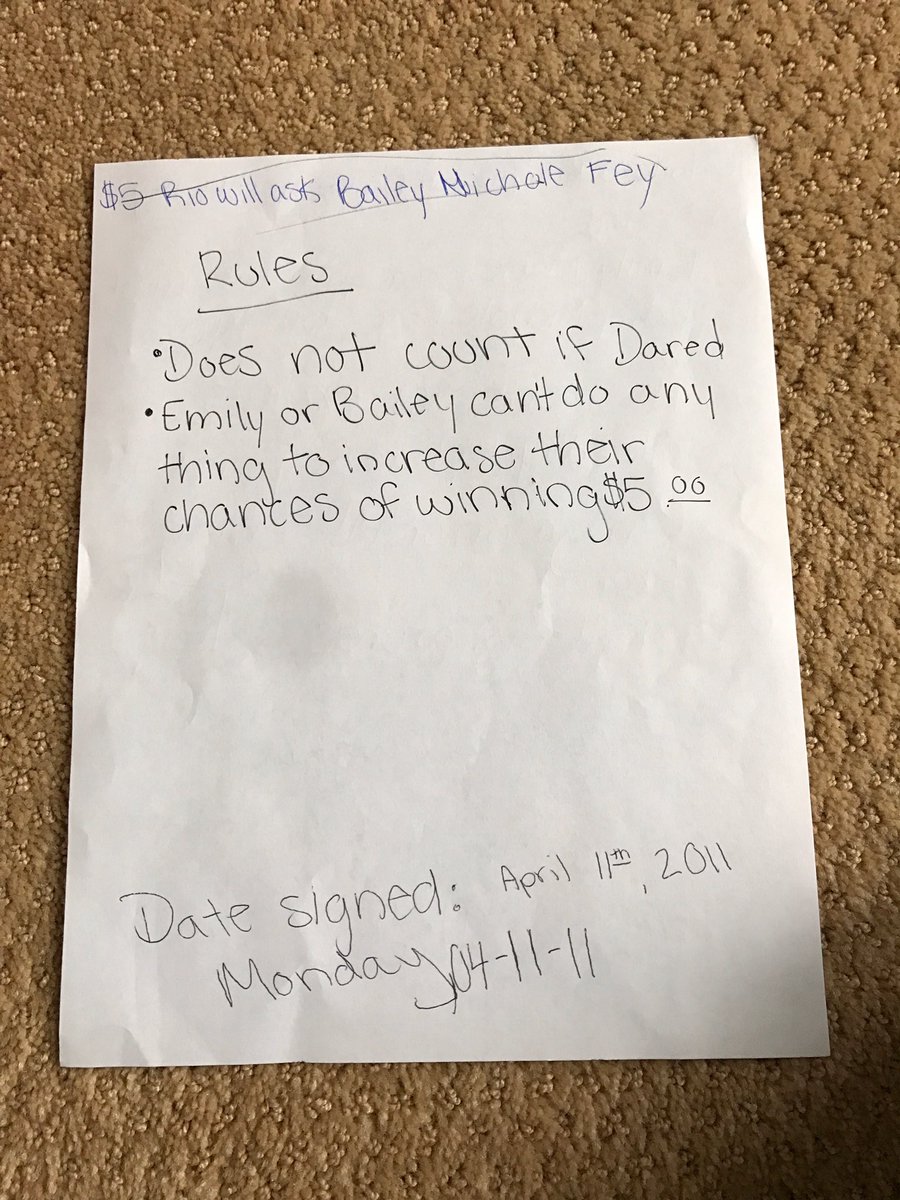 $5 Rio will ask Bailey Michale Fey
Rules
• Does not count if Dared
• Emily or Bailey can't do any
thing to increase their
chances of winning $5.00
Date signed: April 11th, 2011
Monday 04-11-11